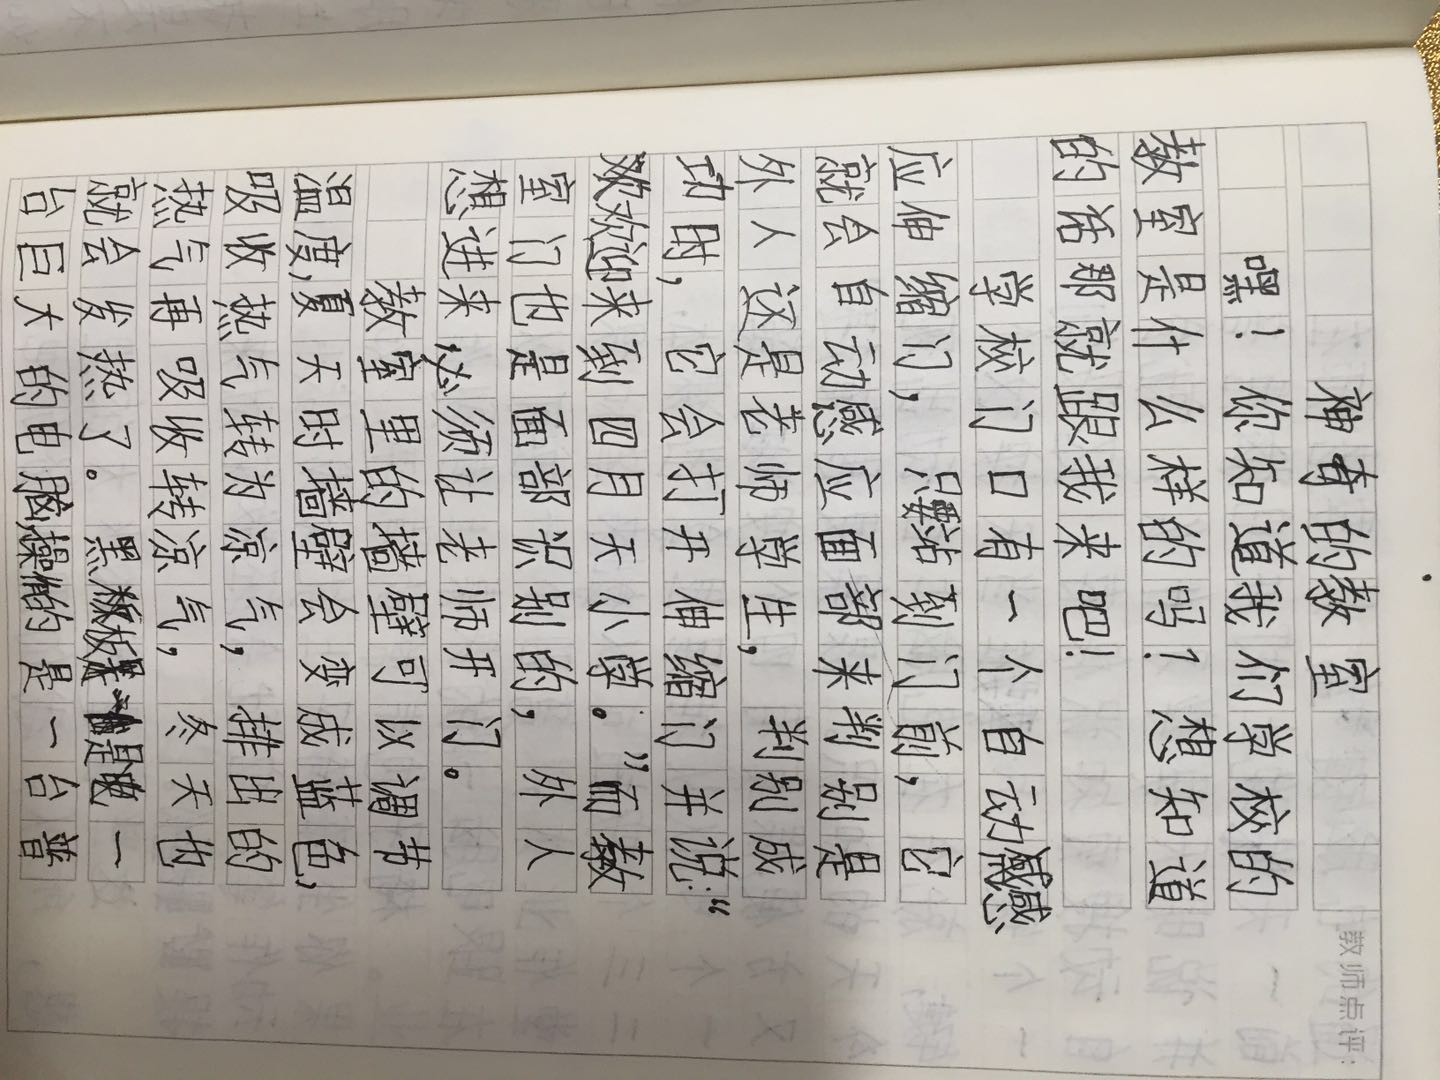 神奇的教室
嘿！你知道我们学校的
教室是什么样的吗？想知道
的话那就跟我来吧！
学校门口有一个自动感
应伸缩门，只站到门前，它
就会自动感应面部来判别是
外人还是老师学生，判别成
功时，它会打开伸缩门并说：“
欢迎来到四月天小学。”而教
室门也是面部识别的，外人
想进来必须让老师开门。
教室里的墙壁可以调节
温度，夏天时墙壁会变成蓝色，
吸收热气转为凉气，排出的
热气再吸收转凉气，冬天也
就会发热了。黑板是一
台巨大的电脑，操作的是一台普
教师点评：